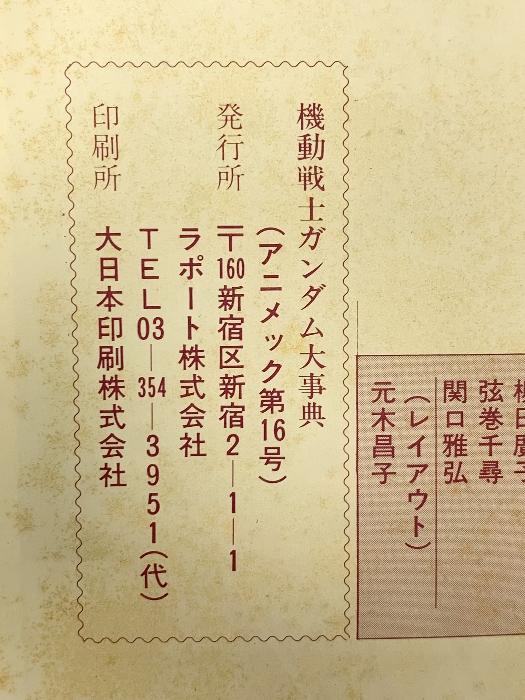 弦巻千尋
関口雅弘
（レイアウト）
元木昌子
機動戦士ガンダム大事典
（アニメック第16号）
発行所 〒160新宿区新宿2―1―1
ラポート株式会社
TEL03―354―3951（代）
印刷所 大日本印刷株式会社